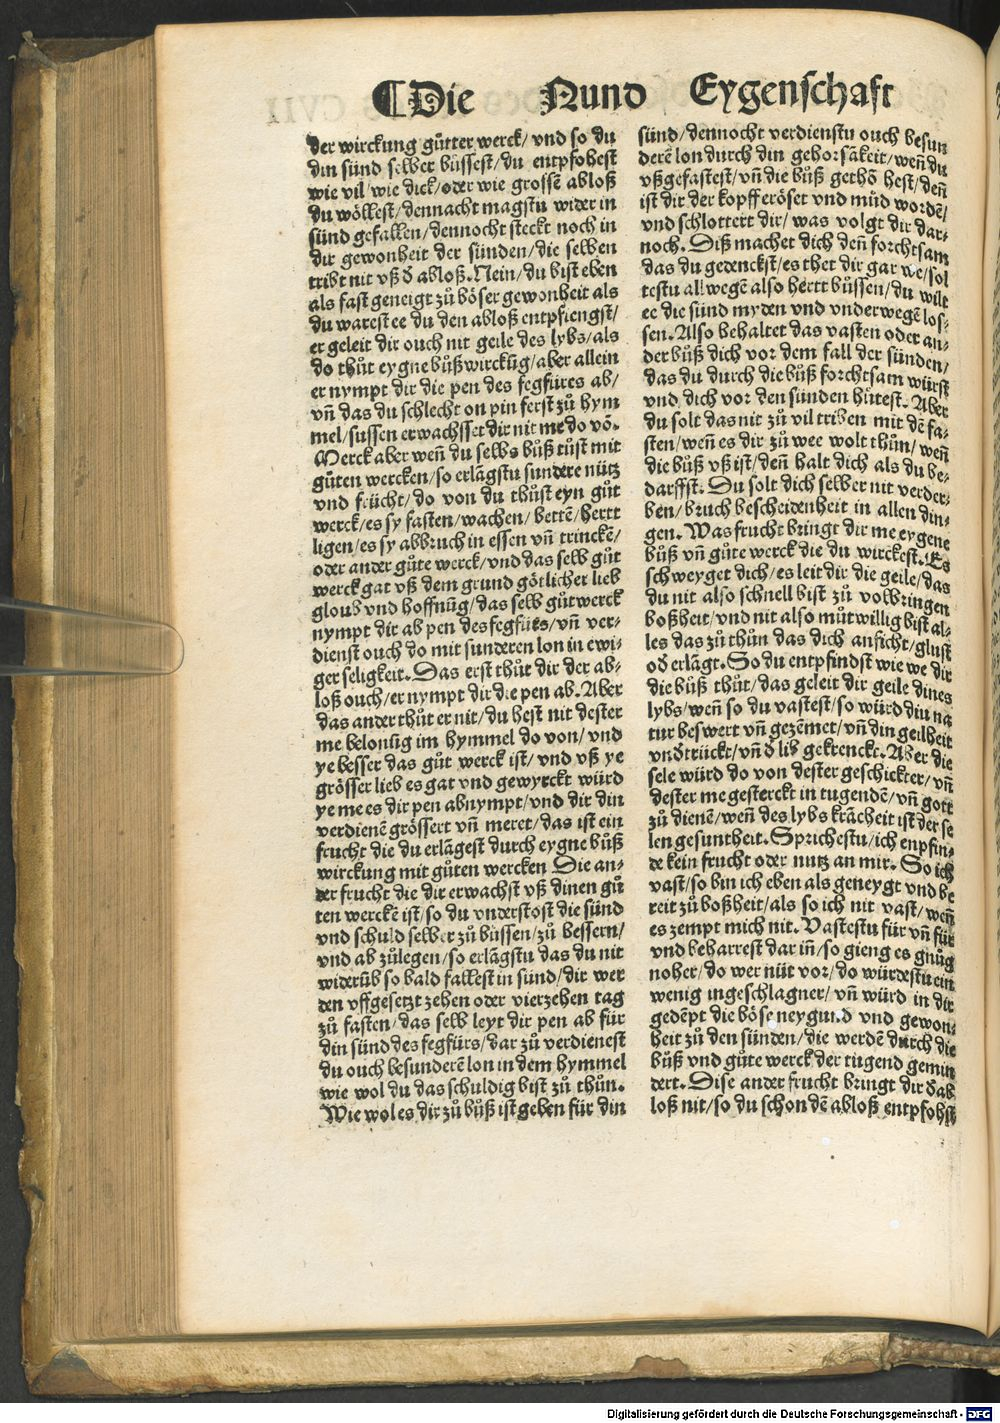 ¶Die Nund Eygenschafft
der wirckung gůtter werck/ vnd so du
din sünd selber büssest/ du entpfohest
wie vil/ wie dick/ oder wie grossē abloß
du wöllest/ dennacht magstu wider in
sünd gefallen/ dennocht steckt noch in
dir gewonheit der sünden/ die selben
tribt nit vß d̄ abloß. Nein/ du bist eben
als fast geneigt zů böser gewonheit als
du warest ee du den abloß entpfiengst/
er geleit dir ouch nit geile des lybs/ als
do thůt eygne bůßwirckūg/ aber allein
er nympt dir die pen des fegfüres ab/
vn̄ das du schlecht on pin ferst zů hym
mel/ sussen erwachsset dir nit me do vō.
Merck aber wen̄ du selbs bůß tůst mit
gůten wercken/ so erlāgstu sundere nütz
vnd frücht/ do von du thůst eyn gůt
werck/ es sy fasten/ wachen/ bettē/ hertt
ligen/ es sy abbruch in essen vn̄ trinckē/
oder ander gůte werck/ vnd das selb gůt
werck gat vß dem grund götlicher lieb
gloub vnd hoffnūg/ das selb gůt werck
nympt dir ab pen des fegfüres/ vn̄ ver-
dienst ouch do mit sunderen lon in ewi-
ger seligkeit. Das erst thůt dir der ab-
loß ouch/ er nympt dir die pen ab. Aber
das ander thůt er nit/ du hest nit dester
me belonūg im hymmel do von/ vnd
ye besser das gůt werck ist/ vnd vß ye
grösser lieb es gat vnd gewyrckt würd
ye me es dir pen abnympt/ vnd dir din
verdienē grössert vn̄ meret/ das ist ein
frucht die du erlāgest durch eygne bůß
wirckung mit gůten wercken Die an-
der frucht die dir erwachst vß dinen gů
ten werckē ist/ so du vnderstost die sünd
vnd schuld selber zů büssen/ zů bessern/
vnd ab zůlegen/ so erlāgstu das du nit
widerūb so bald fallest in sund/ dir wer
den vffgesetzt zehen oder vierzehen tag
zů fasten/ das selb leyt dir pen ab für
din sünd des fegfürs/ dar zů verdienest
du ouch besunderē lon in dem hymmel
wie wol du das schuldig bist zů thůn.
Wie wol es dir zů bůß ist geben für din
sünd/ dennocht verdienstu ouch besun
derē lon durch din gehorsākeit/ wen̄ du
vßgefastest/ vn̄ die bůß gethō hest/ den̄
ist dir der kopff eröset vnd müd wordē/
vnd schlottert dir/ was volgt dir dar-
noch. Diß machet dich den̄ forchtsam
das du gedenckst/ es thet dir gar we/ sol
testu allwegē also hertt büssen/ du wilt
ee die sünd myden vnd vnderwegē los-
sen. Also behaltet das vasten oder an-
der bůß dich vor dem fall der sünden/
das du durch die bůß forchtsam würst
vnd dich vor den sünden hütest. Aber
du solt das nit zů vil triben mit dē fa-
sten/ wen̄ es dir zů wee wolt thůn/ wen̄
die bůß vß ist/ den̄ halt dich als du be-
darffst. Du solt dich selber nit verder-
ben/ bruch bescheidenheit in allen din-
gen. Was frucht bringt dir me eygene
bůß vn̄ gůte werck die du wirckest. Es
schweyget dich/ es leit dir die geile/ das
du nit also schnell bist zů volbringen
boßheit/ vnd nit also můtwillig bist al-
les das zů thůn das dich anficht/ glust
od̄ erlāgt. So du entpfindst wie we dir
die bůß thůt/ das geleit dir geile dines
lybs/ wen̄ so du vastest/ so würd din na
tur beswert vn̄ gezēmet/ vn̄ din geilheit
vnd̄trückt/ vn̄ d̄ lib gekrenckt. Aber die
sele würd do von dester geschickter/ vn̄
dester me gesterckt in tugendē/ vn̄ gott
zů dienē/ wen̄ des lybs krācheit ist der se
len gesuntheit. Sprichestu/ ich enpfin-
de kein frucht oder nutz an mir. So ich
vast/ so bin ich eben als geneygt vnd be
reit zů boßheit/ als so ich nit vast/ wen̄
es zempt mich nit. Vastestu für vn̄ für
vnd beharrest dar in̄/ so gieng es gnůg
noher/ do wer nüt vor/ do würdestu ein
wenig ingeschlagner/ vn̄ würd in dir
gedēpt die böse neygund vnd gewon-
heit zů den sünden/ die werdē durch die
bůß vnd gůte werck der tugend gemin
dert. Dise ander frucht bringt dir d̄ ab
loß nit/ so du schon dē abloß entpfohst
Digitalisierung gefördert durch die Deutsche Forschungsgemeinschaft - DFG